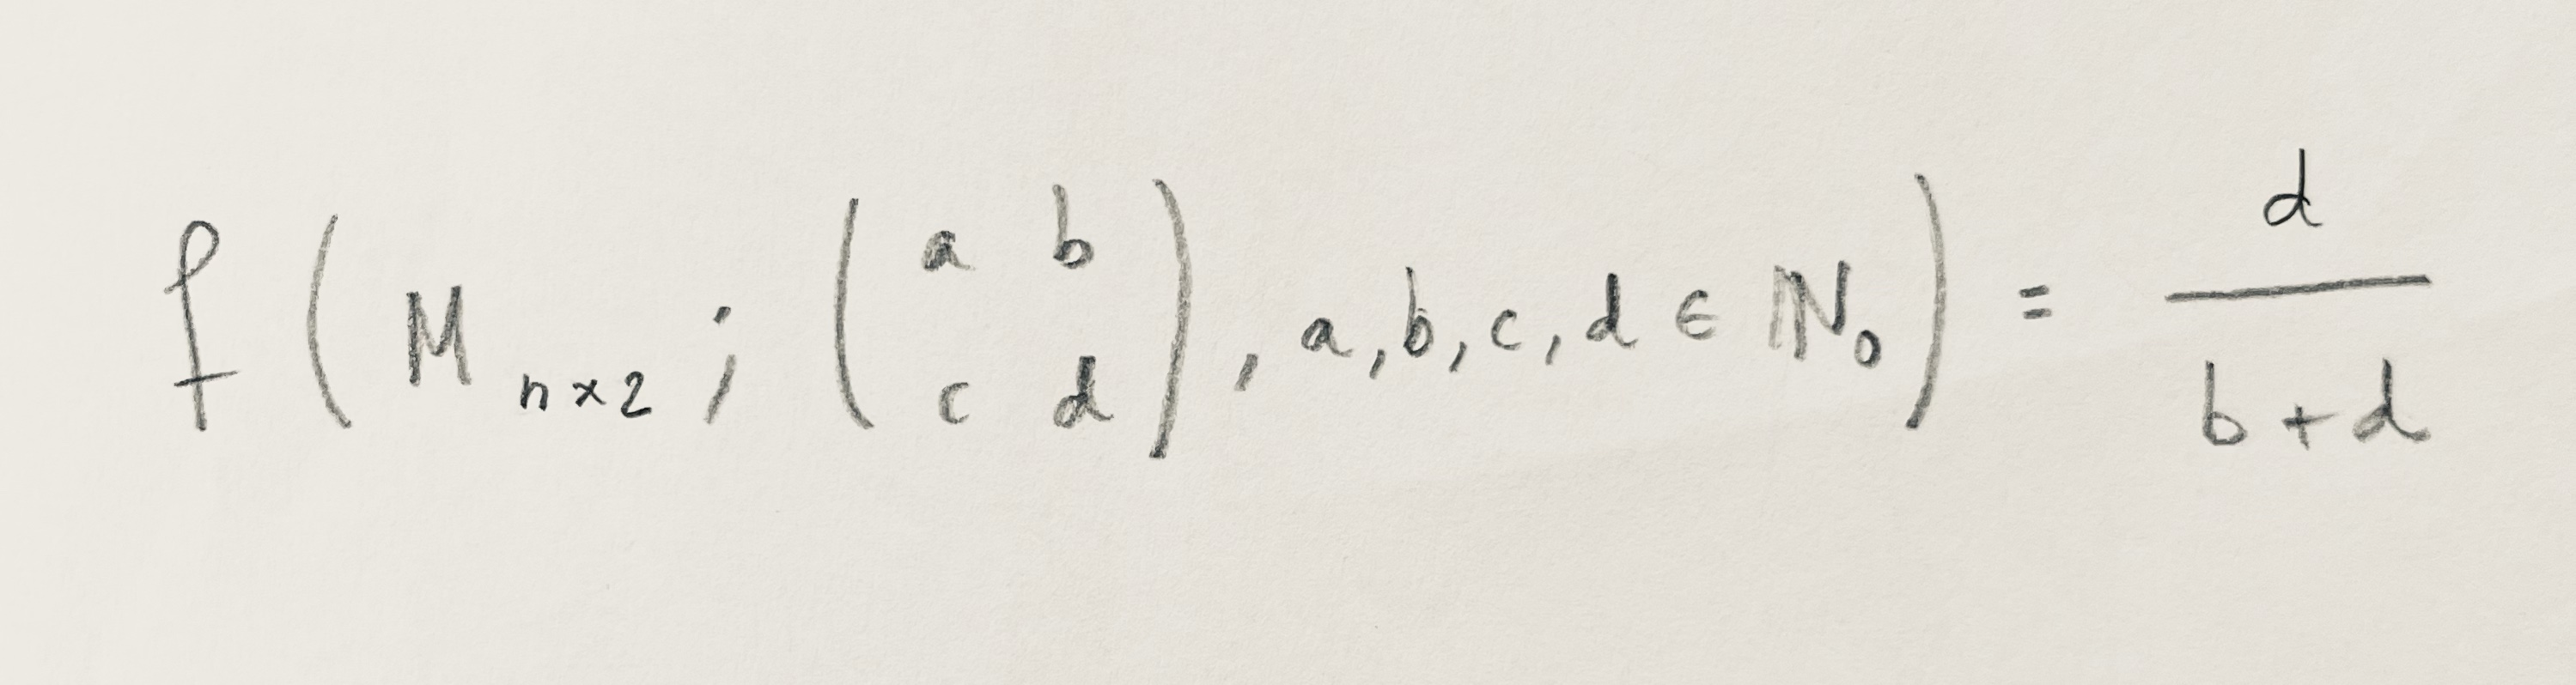 f ( M n×2 ; ( a b c d ) , a, b, c, d ∈ ℕ₀ ) = d / b + d